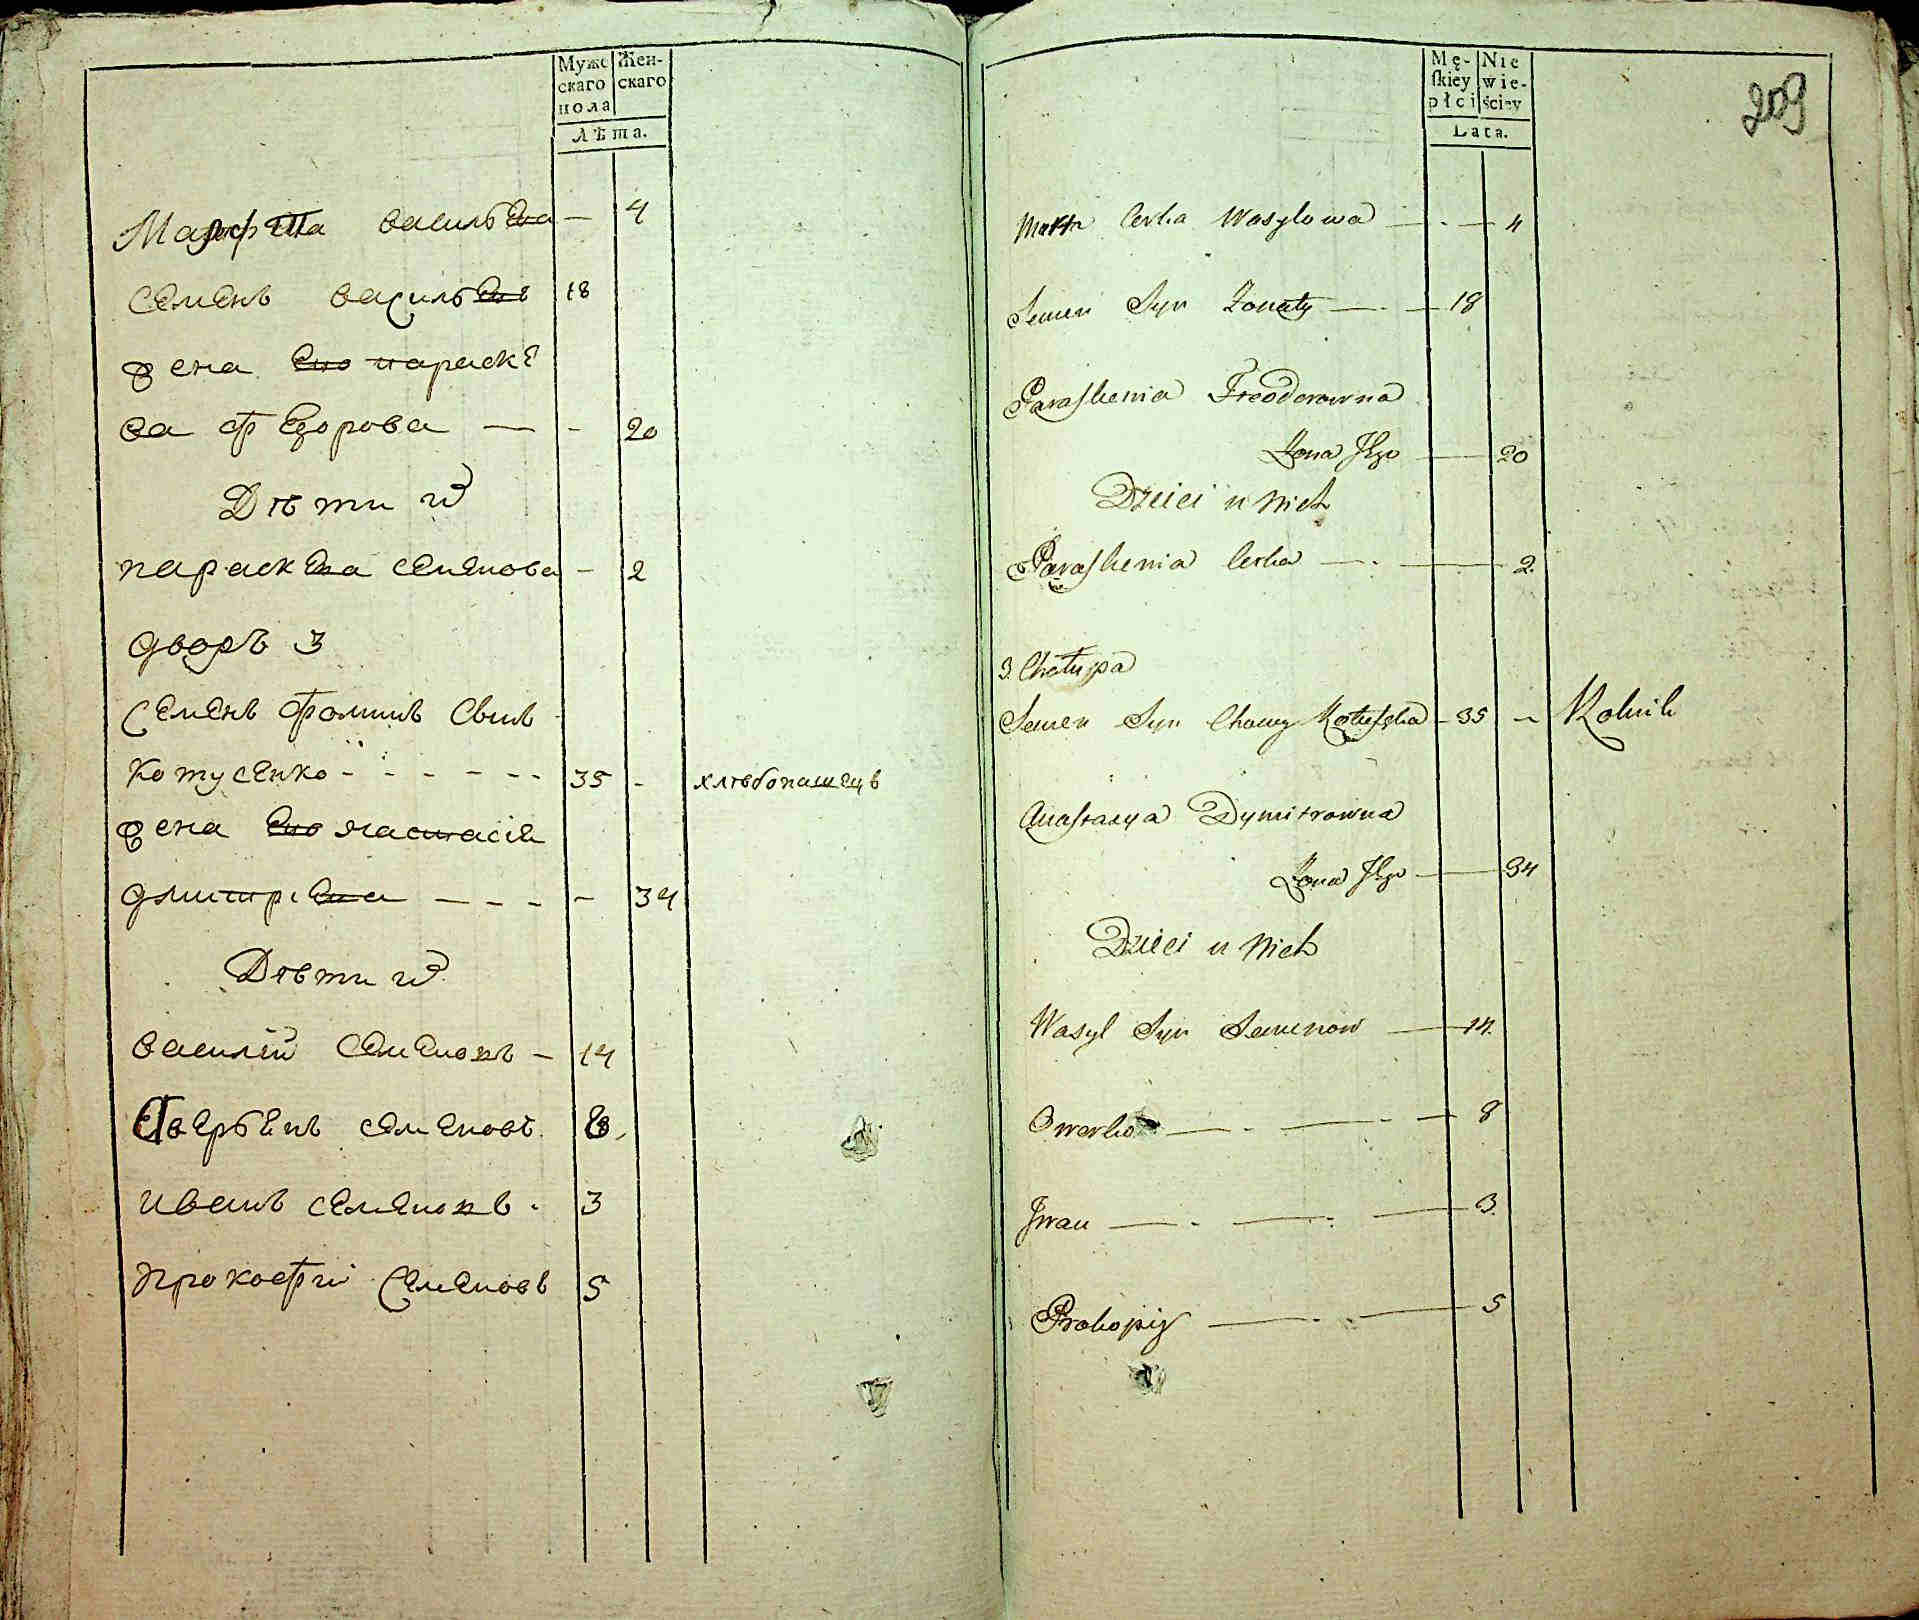 Мужс
скаго
пола
Жен-
скаго
Лѣта.
Марфта васильева — 4
Семенъ васильевъ 18
жена его параске
ва федорова — - 20
Дѣти их
параскева семенова - 2
дворъ 3
Семенъ фоминъ сынъ
Котусенко - - - - - - - 35 - хлѣбопашецъ
жена его настасія
дмитрева - - - - - 34
Дѣти их
василій семеновъ - 14
семеновъ 8
иванъ семеновъ . 3
прокофій семеновъ 5
Mę-
skiey
płci
Nie
wie-
ściey
Lata.
209
Corka Wasylowa — . — 4
Semen Syn Żonaty — . — 18
Paraskewia Feodorowna
Żona Jego — 20
Dzieci u Nich
Paraskewia Corka — . — 2.
3. Chałupa
Semen Syn Chomy - 35 - Rolnik
Anastazya Dymitrowna
Żona Jego — 34
Dzieci u Nich
Wasyl Syn Semenow — 14.
Owerko — . — . — 8
Iwan — . — . — 3.
Prokopiy — . . — 5